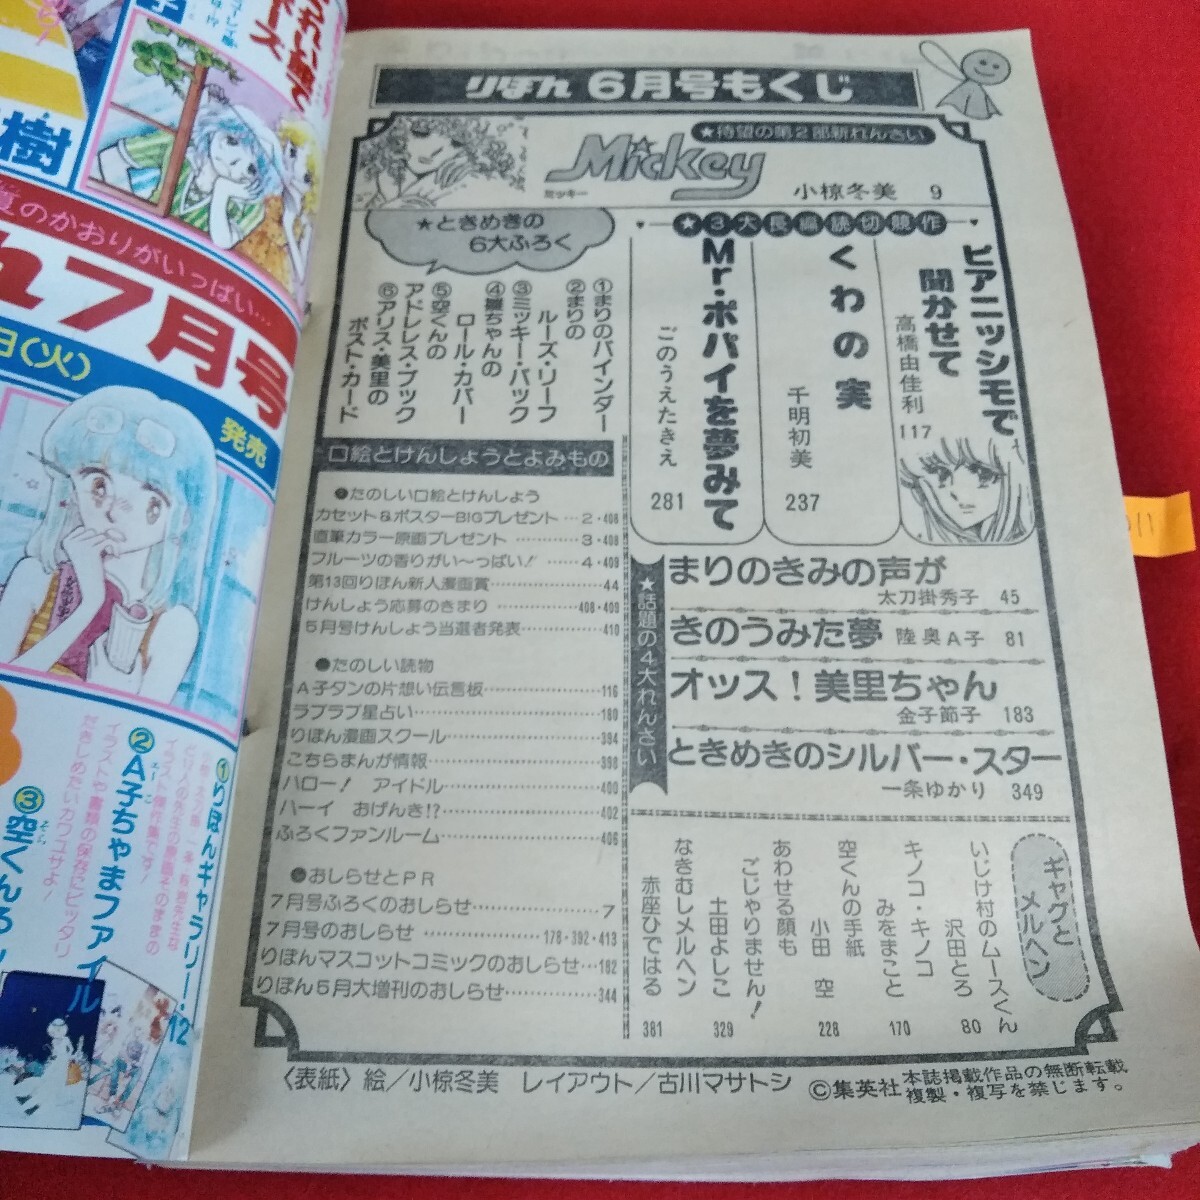 りぼん 6月号もくじ
★待望の第2部新れんさい
Mickey
ミッキー
小椋冬美 9
★3大長編読切競作
ピアニッシモで
聞かせて
高橋由佳利
117
くわの実
千明初美
237
Mr・ポパイを夢みて
このうえたきえ
281
★ときめきの
6大ふろく
①まりのバインダー
②まりの
ルーズ・リーフ
③ミッキー・バック
ロール・カバー
⑤空くんの
アドレス・ブック
⑥アリス・美里の
ポスト・カード
口絵とけんしょうとよみもの
●たのしい口絵とけんしょう
カセット&ポスターBIGプレゼント…2・408
直筆カラー原画プレゼント…3・408
フルーツの香りがい～っぱい!…4・409
第13回りぼん新人漫画賞…44
けんしょう応募のきまり…408・409
5月号けんしょう当選者発表…410
●たのしい読物
A子タンの片想い伝言板…116
ラブラブ星占い…180
りぼん漫画スクール…394
こちらまんが情報…398
ハロー! アイドル…400
ハーイ おげんき!?…402
ふろくファンルーム…406
●おしらせとPR
7月号ふろくのおしらせ…7
7月号のおしらせ…178・392・413
りぼんマスコットコミックのおしらせ…182
りぼん5月大増刊のおしらせ…344
★話題の4大れんさい
まりのきみの声が
太刀掛秀子 45
きのうみた夢 陸奥A子 81
オッス!美里ちゃん
金子節子 183
ときめきのシルバー・スター
一条ゆかり 349
ギャグと
メルヘン
いじけ村のムースくん
沢田とろ
80
キノコ・キノコ
みをまこと
170
空くんの手紙
小田 空
228
あわせる顔も
ごじゃりません!
土田よしこ
329
なきむしメルヘン
赤座ひではる
381
〈表紙〉絵/小椋冬美 レイアウト/古川マサトシ
©集英社
本誌掲載作品の無断転載
複製・複写を禁じます。
樹
夏のかおりがいっぱい…
7月号
(火)
発売
①りぼんギャラリー・12
②A子ちゃまファイル
イラストや書類の保存にピッタリ
だきしめたいカワユサよ!
③空くん
11